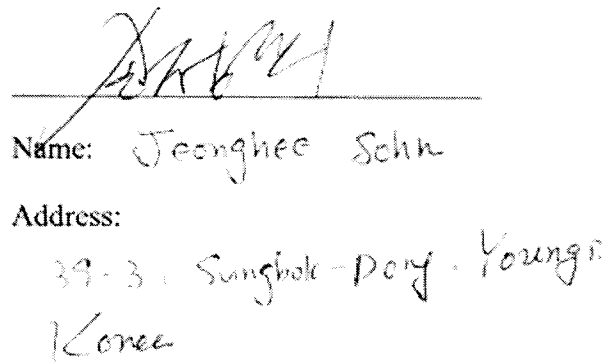 Name: Jeonghee Sohn
Address:
39-3. Sungbok-Dong.
Korea